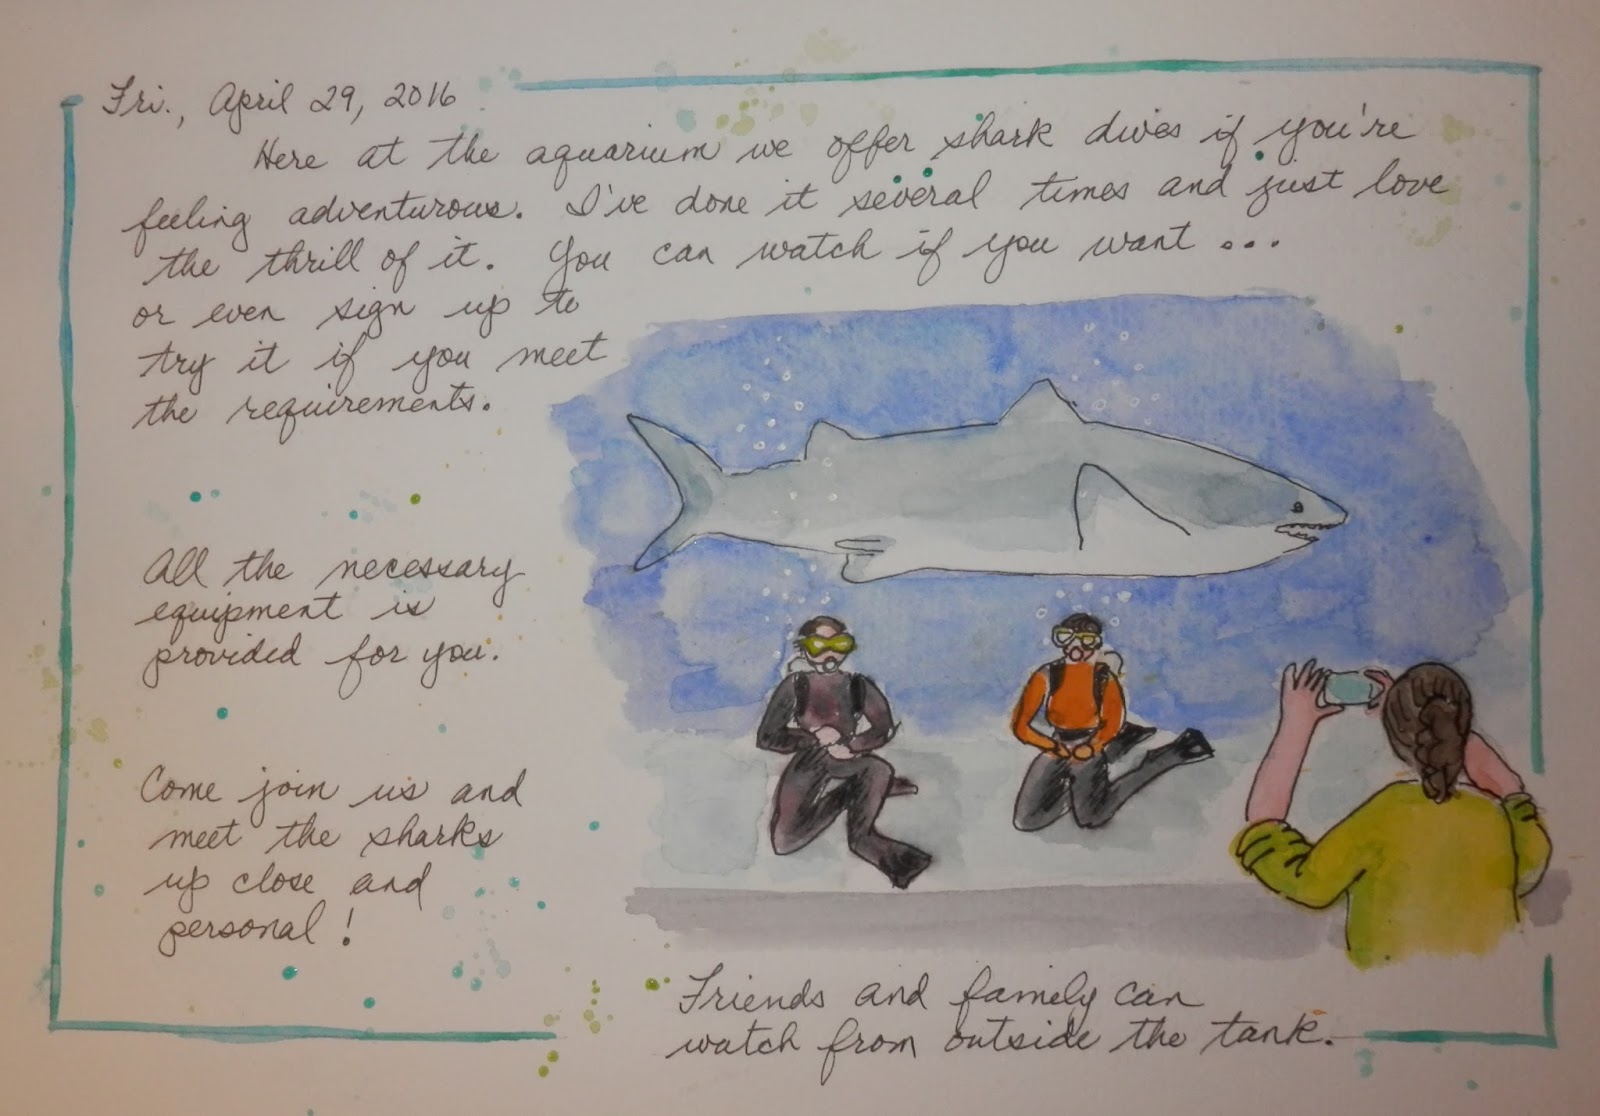 Fri., April 29, 2016
Here at the aquarium we offer shark dives if you're
feeling adventurous. I've done it several times and just love
the thrill of it. You can watch if you want ...
or even sign up to
try it if you meet
the requirements.
All the necessary
equipment is
provided for you.
Come join us and
meet the sharks
up close and
personal!
Friends and family can
watch from outside the tank.